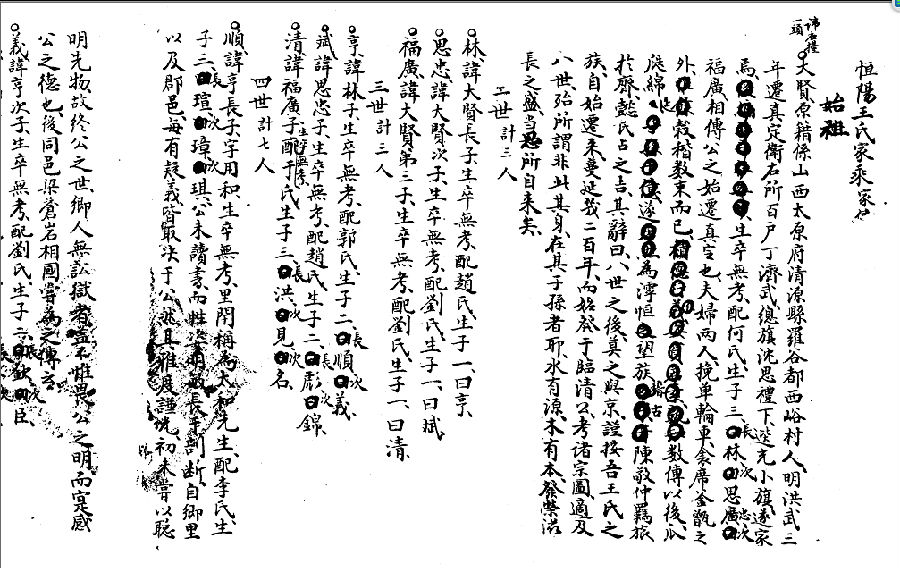 恒陽王氏家乘家世
始祖
諱君擢一頭
大賢原籍係山西太原府清源縣羅谷都西峪村人明洪武三
年遷真定衛右所百户丁濟武傯旗沈思禮下送充小旗遂家
焉生卒無考配何氏生子三長曰林次曰思忠次曰廣
福廣相傳公之始遷真定也夫婦兩人挽單輪車衾席釜甑之
外數束而已數傳以後瓜
瓞綿遂為滹恒望族昔陳敬仲羈旅
於齊懿氏占之吉其辭曰八世之後莫之與京證按吾王氏之
族自始遷来蔓延幾二百年而始發于臨清公考諸宗圖適及
八世殆所謂非此其身在其子孫者耶水有源木有本發榮滋
長之盛當思所自来矣
二世計三人
林諱大賢長子生卒無考配趙氏生子一曰亨
思忠諱大賢次子生卒無考配劉氏生子一曰斌
福廣諱大賢第三子生卒無考配劉氏生子一曰清
三世計三人
亨諱林子生卒無考配郭氏生子二長曰順次曰義
斌諱思忠子生卒無考配趙氏生子二長曰彪次曰錦
清諱福廣子生卒無考配于氏生子三長曰洪次曰見次曰名
四世計七人
順諱亨長子字用和生卒無考里閈稱為太和先生配李氏生
子三長曰瑄次曰璋次曰琪公未讀書而性姿明敏長于剖斷自鄉里
以及郡邑每有疑義皆取决于公然其雅度謙恍初未嘗以聪
明先物故終公之世鄉人無訟獄者盖不惟畏公之明而寔感
公之德也後同邑梁蒼岩相國嘗為之傳云
義諱亨次子生卒無考配劉氏生子二長曰欽次曰臣